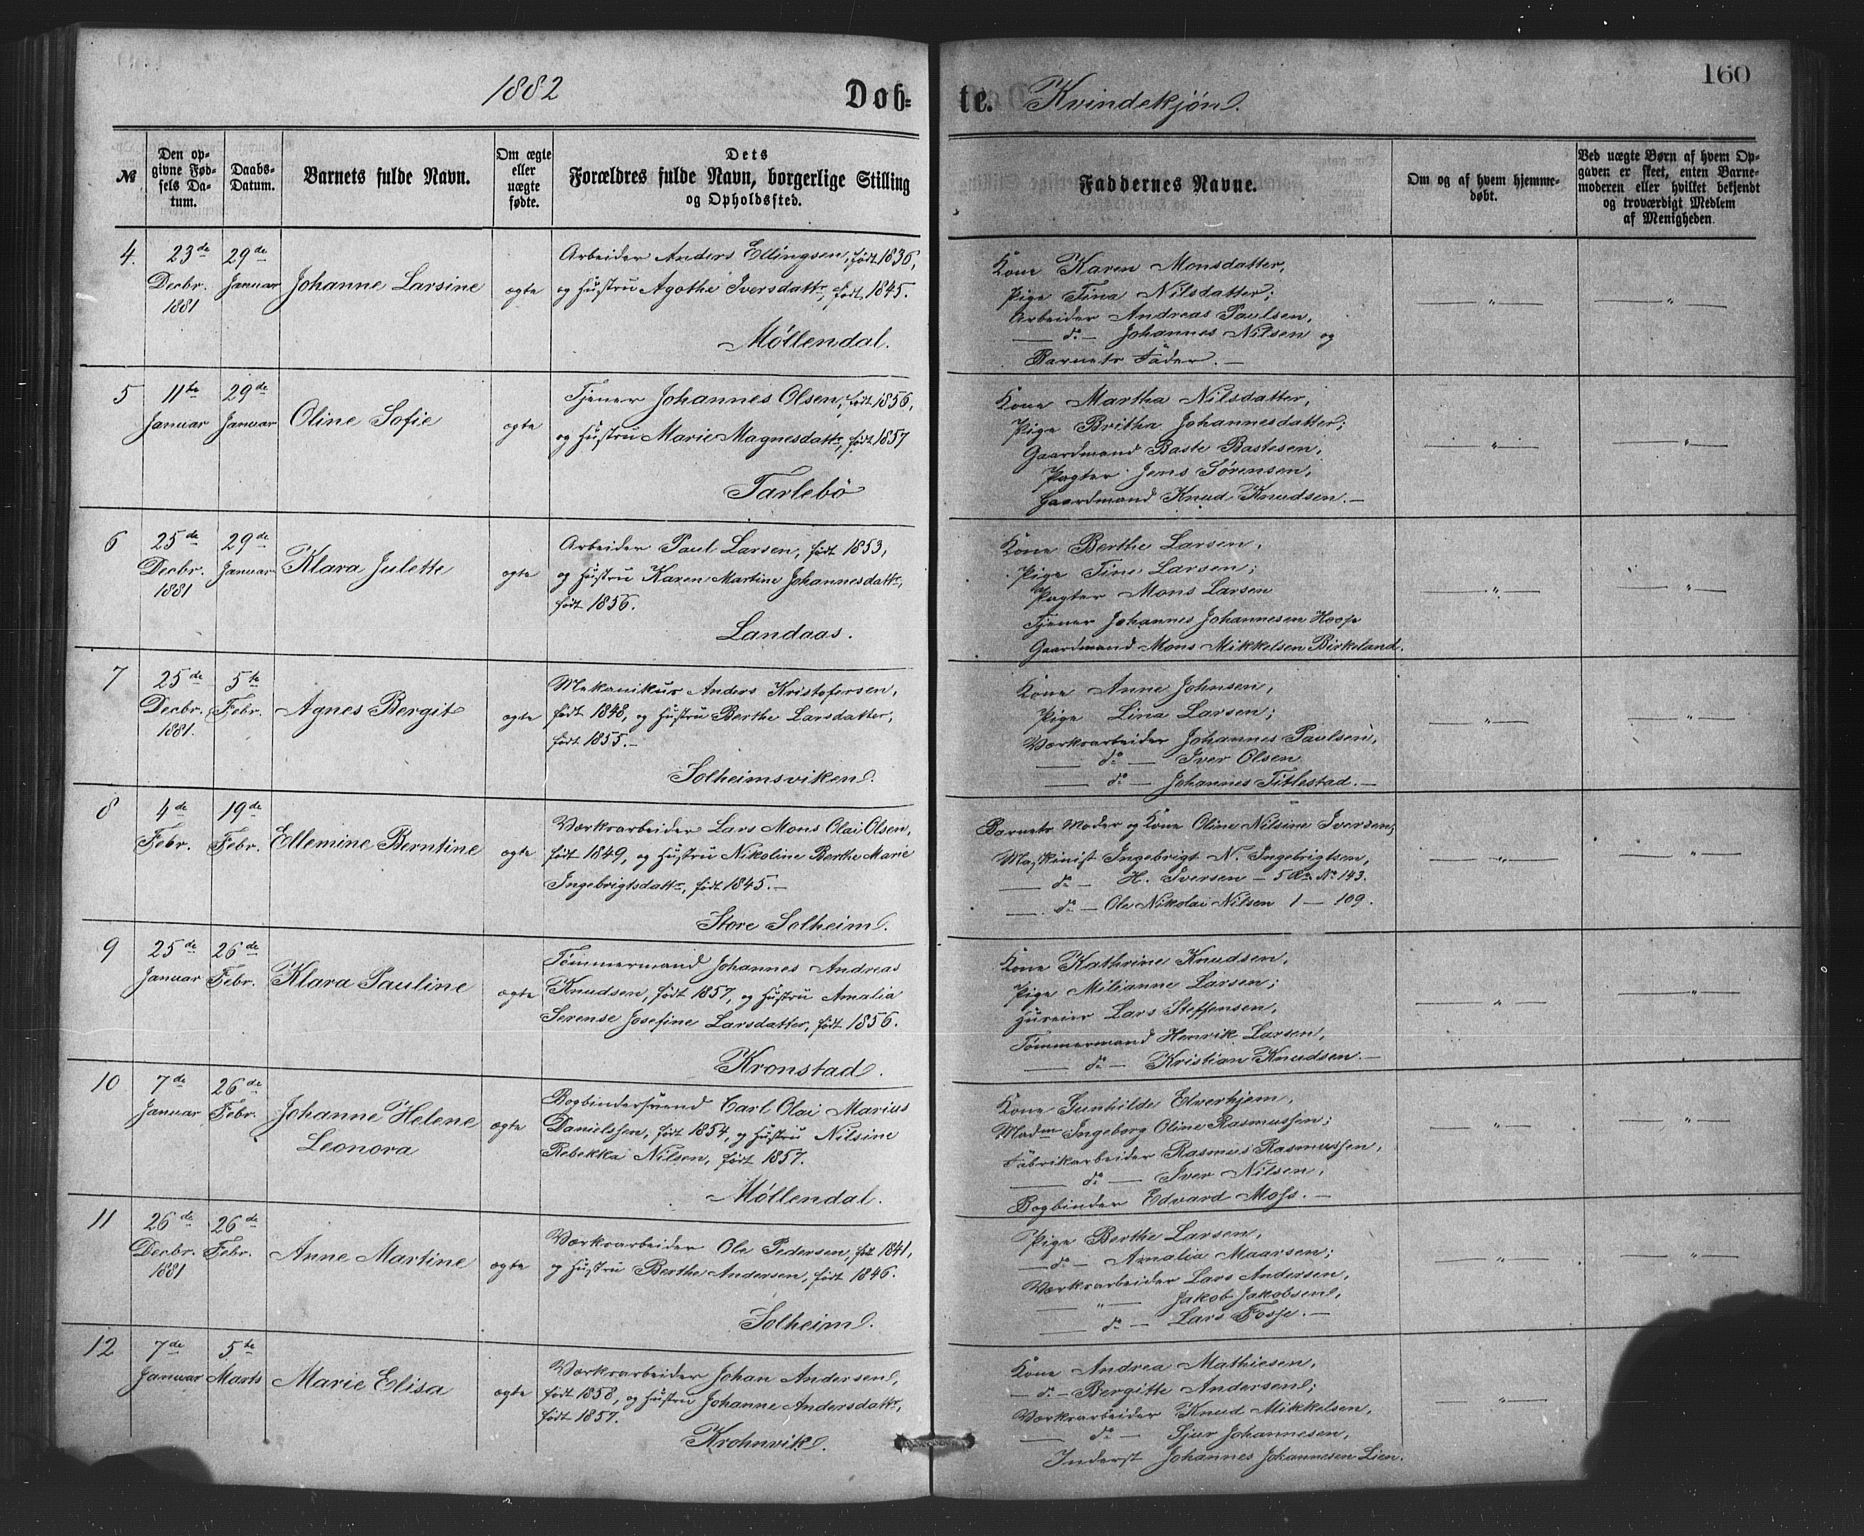 1882 Døb-
te. Kvindekjøn.
160
№
Den op-
givne Fød-
sels Da-
tum.
Daabs-
Datum.
Barnets fulde Navn.
Om ægte
eller
uægte
fødte.
Dets
Forældres fulde Navn, borgerlige Stilling
og Opholdssted.
Faddernes Navne.
Om og af hvem hjemme-
døbt.
Ved uægte Børn af hvem Op-
gaven er skeet, enten Barne-
moderen eller hvilket bekjendt
og troværdigt Medlem
af Menigheden.
4.
23de
Decbr.
1881
29de
Januar
Johanne Larsine
ægte
Arbeider Anders Ellingsen, født 1836,
og Hustru Agothe Iversdattr, født 1845.
Møllendal.
Kone Karen Monsdatter,
Pige Tina Nilsdatter;
Arbeider Andreas Paulsen,
— do — Johannes Nilsen og
Barnets Fader. —
— " —
— " —
5
11te
Januar
29de
Januar
Oline Sofie
ægte
Tjener Johannes Olsen, født 1856,
og Hustru Marie Magnesdattr, født 1857
Tarlebø
Kone Martha Nilsdatter,
Pige Britha Johannesdatter;
Gaardmand Baste Bastesen,
Pagter Jens Sørensen,
Gaardmand Knud Knudsen. —
— " —
— " —
6
25de
Decbr.
1881
29de
Januar
Klara Julette
ægte
Arbeider Paul Larsen, født 1853,
og Hustru Karen Martine Johannesdattr,
født 1856.
Landaas.
Kone Berthe Larsen,
Pige Tine Larsen;
Pagter Mons Larsen
Tjener Johannes Johannesen Hope
Gaardmand Mons Mikkelsen Birkeland.
— " —
— " —
7
25de
Decbr.
1881.
5te
Febr.
Agnes Bergit
ægte
Mekanikus Anders Kristofersen,
født 1848, og Hustru Berthe Larsdatter,
født 1855. —
Solheimsviken.
Kone Anne Johnsen,
Pige Lina Larsen;
Værksarbeider Johannes Paulsen,
— do — Iver Olsen
— do — Johannes Titlestad. —
— " —
— " —
8
4de
Febr.
19de
Febr.
Ellemine Berntine
ægte
Værksarbeider Lars Mons Olai Olsen,
født 1849, og Hustru Nikoline Berthe Marie
Ingebrigtsdattr, født 1845. —
Store Solheim.
Barnets Moder og Kone Oline Nilsine Iversen;
Maskinist Ingebrigt N. Ingebrigtsen,
— do — H. Iversen — 5 Rd. No 143.
— do — Ole Nikolai Nilsen 1 — 109.
— " —
— " —
9
25de
Januar
26de
Febr.
Klara Pauline
ægte
Tømmermand Johannes Andreas
Knudsen, født 1857, og Hustru Amalia
Serense Josefine Larsdatter, født 1856.
Kronstad.
Kone Kathrine Knudsen,
Pige Milianne Larsen;
Huseier Lars Steffensen,
Tømmermand Henrik Larsen,
— do — Kristian Knudsen. —
— " —
— " —
10
7de
Januar
26de
Febr.
Johanne Helene
Leonora
ægte
Bogbindersvend Carl Olai Marius
Danielsen, født 1854, og Hustru Nilsine
Rebekka Nilsen, født 1857.
Møllendal.
Kone Gunhilde Elverhjem,
Madm Ingeborg Oline Rasmussen;
Fabrikarbeider Rasmus Rasmussen,
— do — Iver Nilsen,
Bogbinder Edvard Moss. —
— " —
— " —
11
26de
Decbr.
1881
26de
Febr.
Anne Martine
ægte
Værksarbeider Ole Pedersen, født 1841,
og Hustru Berthe Andersen, født 1846.
Solheim.
Pige Berthe Larsen,
— do — Amalia Maarsen;
Værksarbeider Lars Andersen,
— " — Jakob Jakobsen,
— do — Lars Fosse. —
— " —
— " —
12
7de
Januar
5te
Marts
Marie Elisa
ægte
Værksarbeider Johan Andersen,
født 1858, og Hustru Johanne Andersdattr,
født 1857.
Krohnvik.
Kone Andrea Mathiesen,
— do — Bergitte Andersen;
Værksarbeider Knud Mikkelsen,
— do — Sjur Johannesen,
Inderst Johannes Johannesen Lien.
— " —